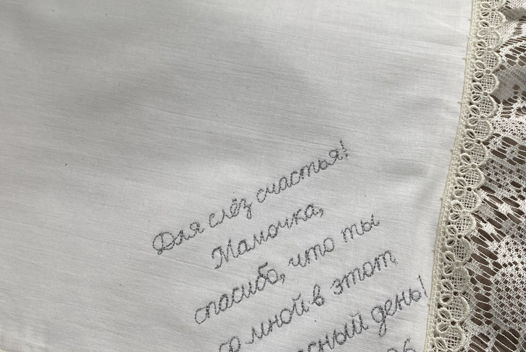 Для слёз счастья!
Мамочка,
спасибо, что ты
со мной в этот
день!